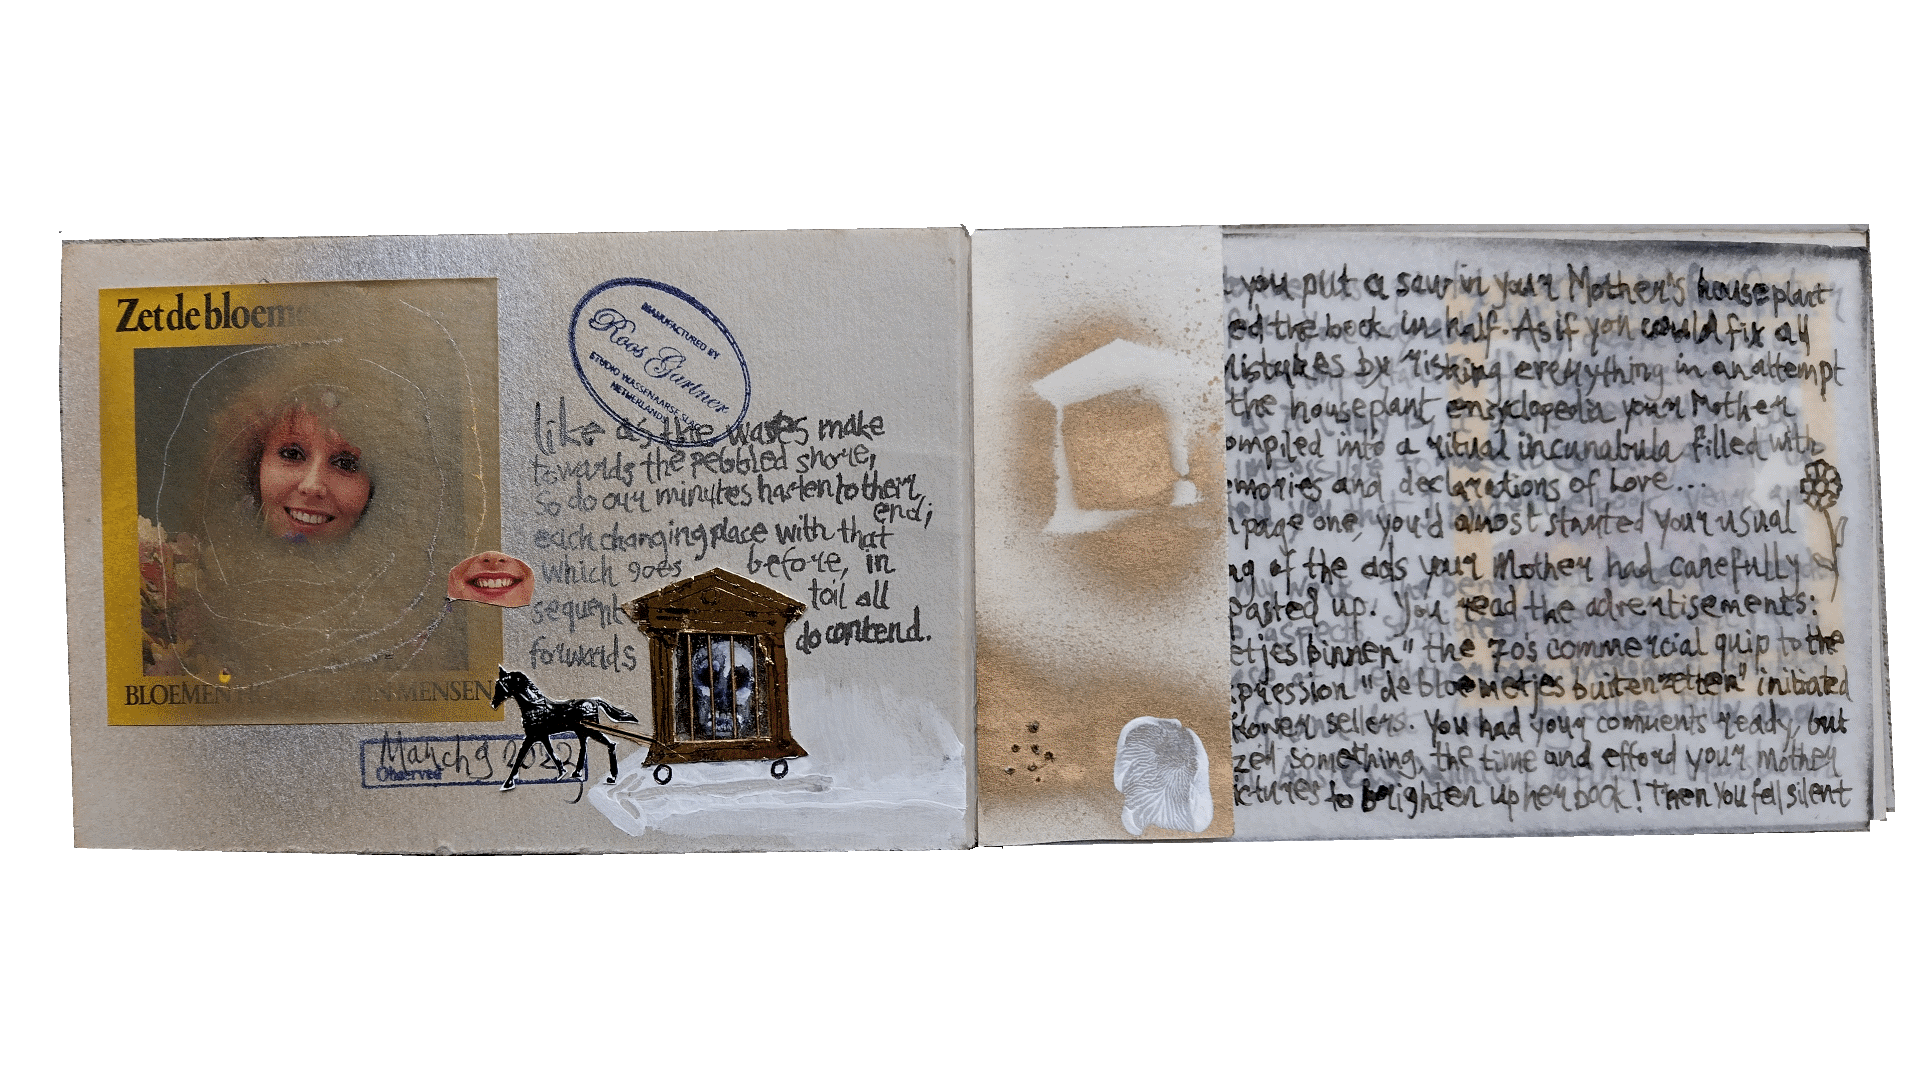 Zet de bloeme
BLOEMEN
MENSEN
MANUFACTURED BY
Roos Gartner
STUDIO WASSENAARSE SLAG
NETHERLANDS
like as the waves make
towards the pebbled shore,
so do our minutes hasten to their
end;
each changing place with that
which goes before, in
sequent toil all
forwards do contend.
March 9 2022
Observed
you put a saw in your Mother's houseplant
ed the book in half. As if you could fix all
mistakes by risking everything in an attempt
the houseplant encyclopedia your Mother
ompiled into a ritual incunabula filled with
emories and declarations of Love...
page one, you'd almost started your usual
ng of the ads your Mother had carefully
pasted up. You read the advertisements:
etjes binnen" the 70's commercial quip to the
xpression "de bloemetjes buitenzetten" initiated
flower sellers. You had your comments ready, but
zed something, the time and efford your Mother
ictures to brighten up her book! Then You fell silent